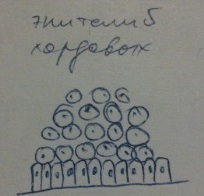 эпители б
хордовых